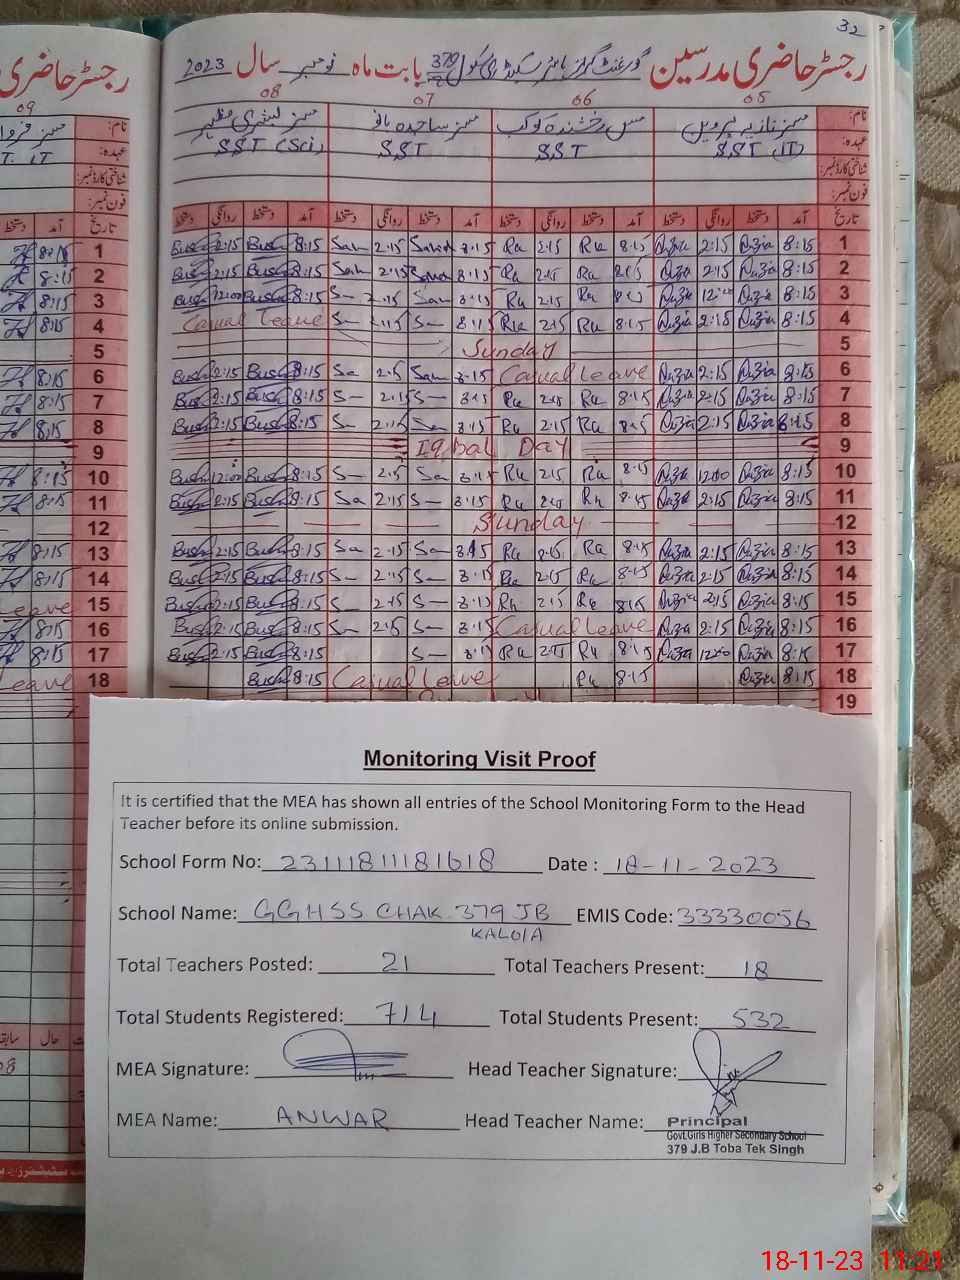 32
رجسٹر حاضری مدرسین گورنمنٹ گرلز ہائیر سیکنڈری سکول 379 بابت ماہ نومبر سال 2023
رجسٹر حاضری
05 06 07 08
09
نام: مسز نازیہ پروین مس رخشندہ کوکب مسز ساجدہ بانو مسز
عہدہ: SST (IT) SST SST SST (Sci)
شناختی کارڈ نمبر:
فون نمبر:
تاریخ آمد دستخط روانگی دستخط آمد دستخط روانگی دستخط آمد دستخط روانگی دستخط آمد دستخط روانگی دستخط
1 8:15 Nazia 2:15 Nazia 8:15 Ru 2:15 Ra 8:15 2:15 Sam 8:15 Bush 2:15 Bush
2 8:15 Nazia 2:15 Ru 2:15 Ra 8:15 2:15 Sam 8:15 Bush 2:15 Bush
3 8:15 Nazia 12:00 Nazia Ru 2:15 Ra 8:15 Sam 2:15 S 8:15 Bush 12:00 Bush
4 8:15 Nazia 2:15 Nazia 8:15 Ru 2:15 Ru 8:15 Sa 2:15 S Casual Leave
5 Sunday
6 8:15 Nazia 2:15 Nazia Casual Leave 8:15 Sam 2:15 Sa 8:15 Bush 2:15 Bush
7 8:15 Nazia 2:15 Nazia 8:15 Ru 2:15 Ru 8:15 S 2:15 S 8:15 Bush 2:15 Bush
8 8:15 Nazia 2:15 Nazia 8:15 Ru 2:15 Ru 8:15 Sa 2:15 S 8:15 Bush 2:15 Bush
9 Iqbal Day
10 8:15 Nazia 12:00 8:15 Ru 2:15 Ru 8:15 Sa 2:15 S 8:15 Bush 12:00 Bush
11 8:15 Nazia 2:15 8:15 Ru 2:15 Ru 8:15 S 2:15 Sa 8:15 Bush 2:15 Bush
12 Sunday
13 8:15 Nazia 2:15 Nazia 8:15 Ru Ru 8:15 Sa 2:15 Sa 8:15 Bush 2:15 Bush
14 8:15 Nazia 2:15 Nazia 8:15 Ru 2:15 Ru 8:15 S 2:15 S 8:15 Bush 2:15 Bush
15 8:15 Nazia 2:15 Nazia 8:15 Ru 2:15 Ru 8:15 S 2:15 S 8:15 Bush 2:15 Bush
16 8:15 Nazia 2:15 Nazia Casual Leave 8:15 S 2:15 S 8:15 Bush 2:15 Bush
17 8:15 Nazia 12:00 Nazia 8:15 Ru 2:15 Ru 8:15 S 8:15 Bush 2:15 Bush
18 8:15 Nazia 8:15 Ru Casual Leave 8:15 Bush
19
Monitoring Visit Proof
It is certified that the MEA has shown all entries of the School Monitoring Form to the Head
Teacher before its online submission.
School Form No: 23111811181618 Date : 18-11-2023
School Name: GGHSS CHAK 379 JB EMIS Code: 33330056
KALOIA
Total Teachers Posted: 21 Total Teachers Present: 18
Total Students Registered: 714 Total Students Present: 532
MEA Signature: Head Teacher Signature:
MEA Name: ANWAR Head Teacher Name: Principal
Govt.Girls Higher Secondary School
379 J.B Toba Tek Singh
18-11-23 11:21